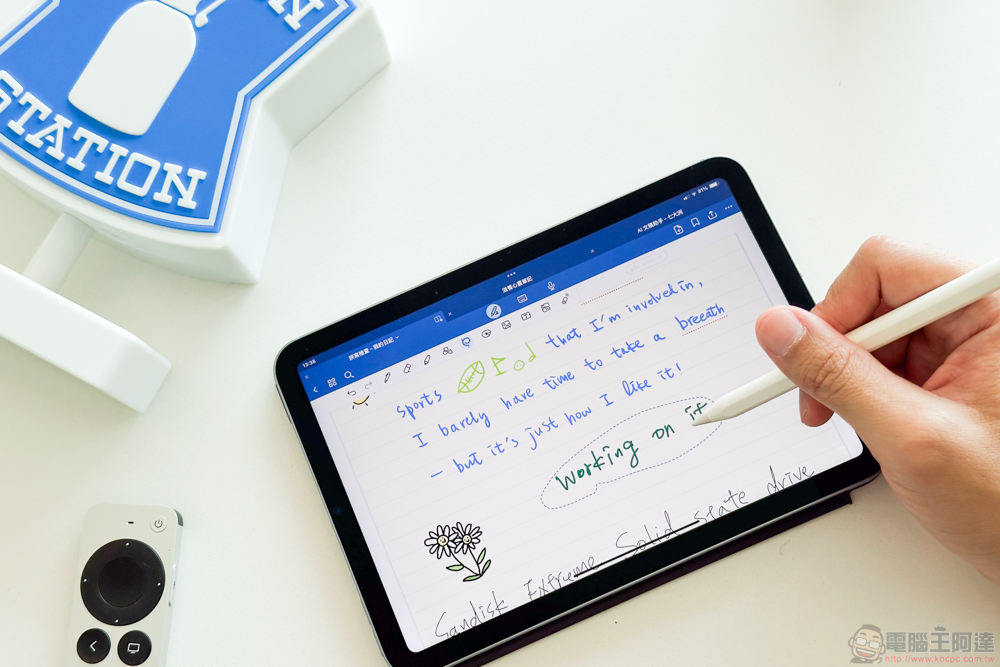 STATION
13:38
91%
AI 文稿助手 - 七大洲
sports that I'm involved in,
I barely have time to take a breath
— but it's just how I like it!
Working on it
Sandisk Extreme Solid state drive
電腦王阿達
http://www.kocpc.com.tw